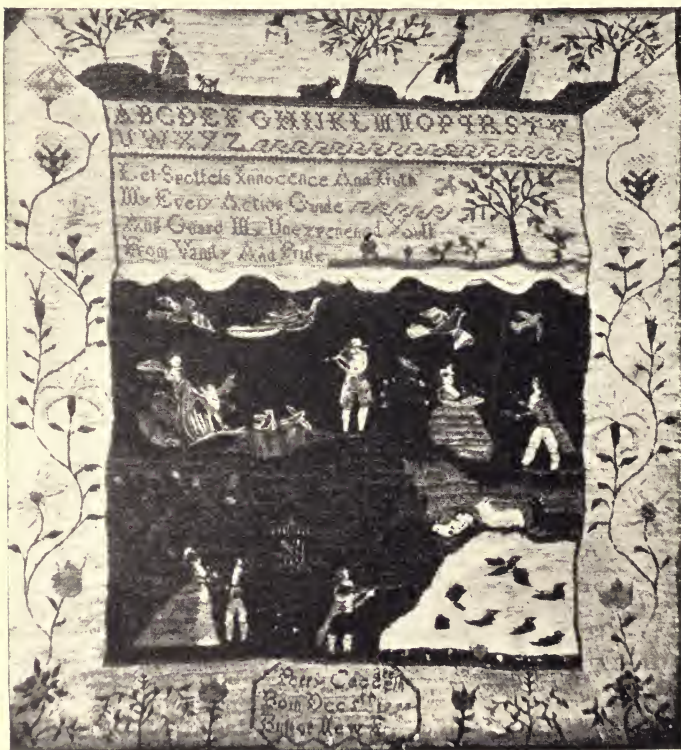 ABCDEF GHIJKLMNOPQRSTV
UWXYZ
Let Spotless Innocence And Truth
My Every Action Guide
And Guard My Unexperenced Youth
From Vanity And Pride
Born Dec